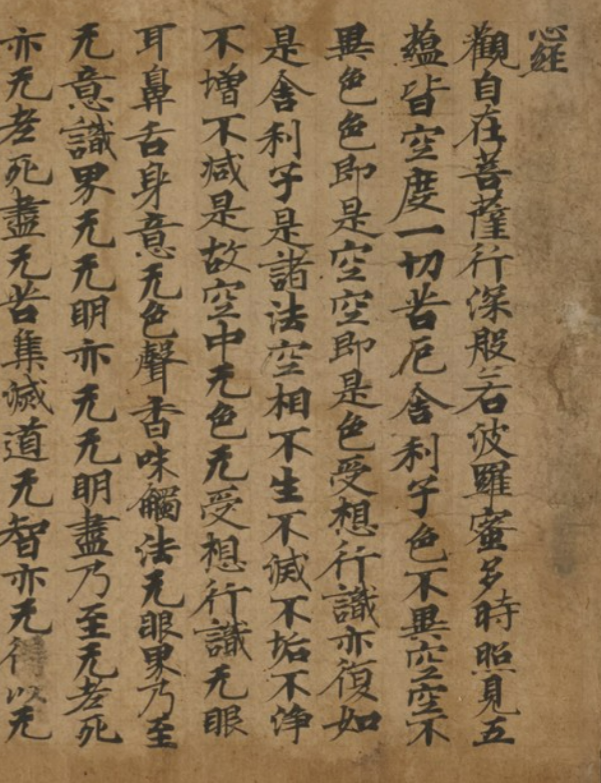 心經
觀自在菩薩行深般若波羅蜜多時照見五
蘊皆空度一切苦厄舍利子色不異空空不
異色色即是空空即是色受想行識亦復如
是舍利子是諸法空相不生不滅不垢不淨
不增不减是故空中无色无受想行識无眼
耳鼻舌身意无色聲香味觸法无眼界乃至
无意識界无无明亦无无明盡乃至无老死
亦无老死盡无苦集滅道无智亦无得以无